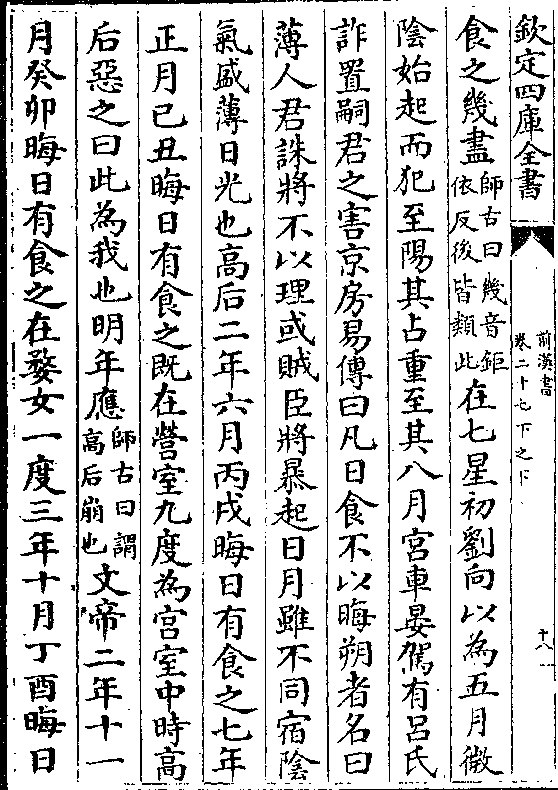 欽定四庫全書
前漢書
卷二十七下之下
十八
食之幾盡師古曰幾音鉅依反後皆類此在七星初劉向以為五月微
陰始起而犯至陽其占重至其八月宮車晏駕有呂氏
詐置嗣君之害京房易傳曰凡日食不以晦朔者名曰
薄人君誅將不以理或賊臣將暴起日月雖不同宿陰
氣盛薄日光也高后二年六月丙戌晦日有食之七年
正月己丑晦日有食之既在營室九度為宮室中時高
后惡之曰此為我也明年應師古曰謂高后崩也文帝二年十一
月癸卯晦日有食之在婺女一度三年十月丁酉晦日